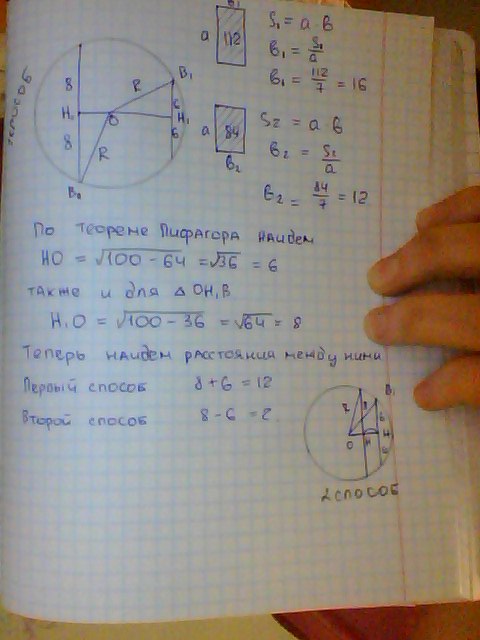 1 способ
8
8
H₀
O
R
R
B₁
6
H₁
6
B₀
a
112
S₁ = a в
в₁ = S₁/a
в₁ = 112/7 = 16
a
84
в₂
S₂ = a в
в₂ = S₂/a
в₂ = 84/7 = 12
По теореме Пифагора найдем
HO = √100 - 64 = √36 = 6
также и для △ OH₁B
H₁O = √100 - 36 = √64 = 8
Теперь найдем расстояния между ними
Первый способ 8 + 6 = 12
Второй способ 8 - 6 = 2
B₁
6
O
H
H
2 способ